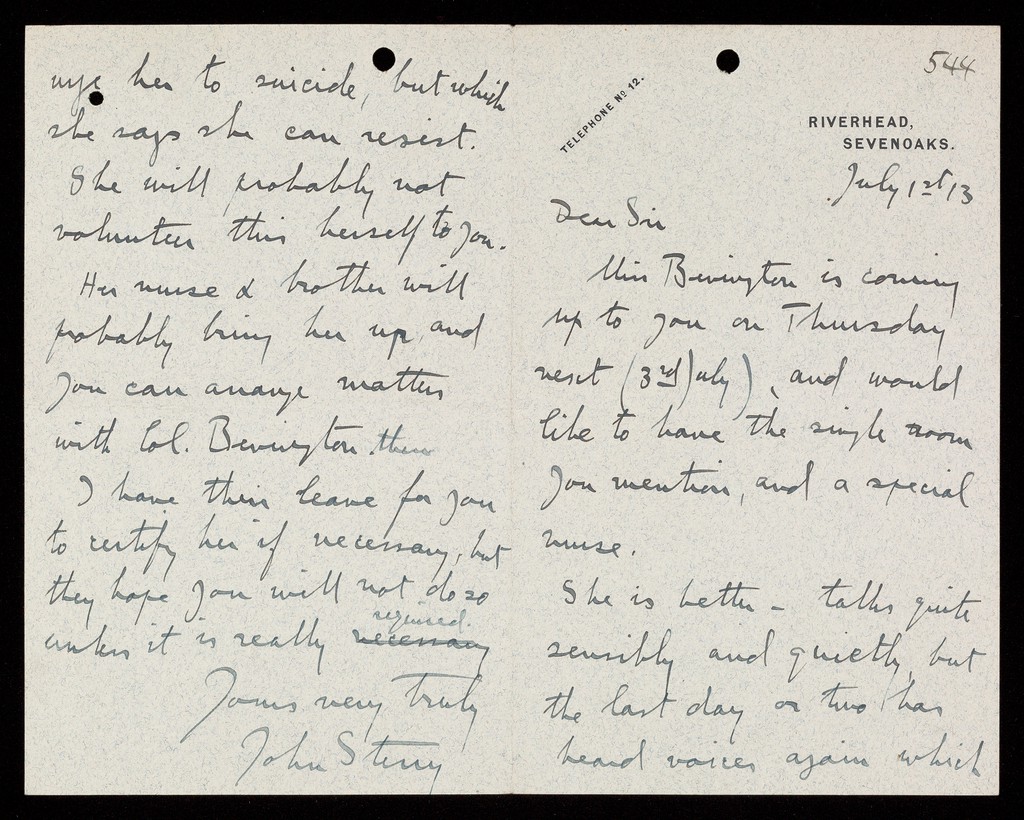 544
TELEPHONE Nº 12.
RIVERHEAD,
SEVENOAKS.
July 1st 13
Dear Sir
Miss Bevington is coming
up to you on Thursday
next (3rd July), and would
like to have the single room
you mention, and a special
nurse.
She is better - talks quite
sensibly and quietly, but
the last day or two has
heard voices again which
urge her to suicide, but which
she says she can resist.
She will probably not
volunteer this herself to you.
Her nurse & brother will
probably bring her up, and
you can arrange matters
with Col. Bevington then
I have their leave for you
to certify her if necessary, but
they hope you will not do so
required.
unless it is really necessary
Yours very truly
John Sterry